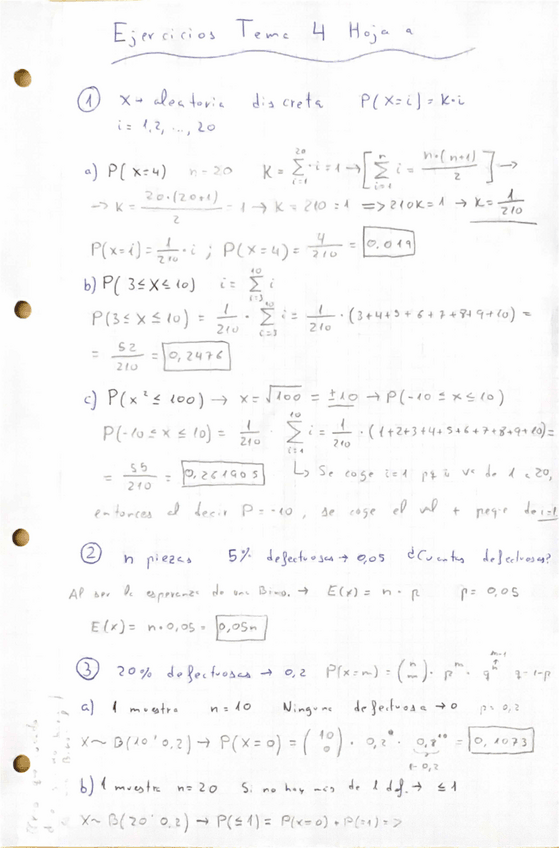 Ejercicios Tema 4 Hoja a
① X → aleatoria discreta P(X=i) = K·i
i = 1,2, ..., 20
a) P(X=4) n=20 K = Σ_{i=1}^{20} · i = 1 → [Σ_{i=1}^{n} i = n·(n+1)/2] →
→ K = 20·(20+1)/2 = 1 → K = 210 = 1 => 210K = 1 → K = 1/210
P(X=i) = 1/210 · i ; P(X=4) = 4/210 = 0.019
b) P(3≤X≤10) i = Σ_{i=3}^{10} i
P(3≤X≤10) = 1/210 · Σ_{i=3}^{10} i = 1/210 · (3+4+5+6+7+8+9+10) =
= 52/210 = 0,2476
c) P(x² ≤ 100) → x = √100 = ±10 → P(-10 ≤ x ≤ 10)
P(-10 ≤ x ≤ 10) = 1/210 · Σ_{i=1}^{10} i = 1/210 · (1+2+3+4+5+6+7+8+9+10) =
= 55/210 = 0,261905 ↳ Se coge i=1 pq i va de 1 a 20,
entonces al decir P = -10, se coge el val + peq de i=1
② n piezas 5% defectuosas → 0,05 ¿Cuantas defectuosas?
Al ser la esperanza de una Bino. → E(x) = n · p p = 0,05
E(x) = n·0,05 = 0,05n
③ 20% defectuosas → 0,2 P(x=m) = (n m) · p^m · q^{n-m} q = 1-p
a) 1 muestra n=10 Ninguna defectuosa → 0 p = 0,2
X ~ B(10' 0,2) → P(X=0) = (10 0) · 0,2⁰ · 0,8¹⁰ = 0,1073
1-0,2
b) 1 muestra n=20 Si no hay más de 1 def. → ≤ 1
X ~ B(20' 0,2) → P(≤1) = P(x=0) + P(=1) = >